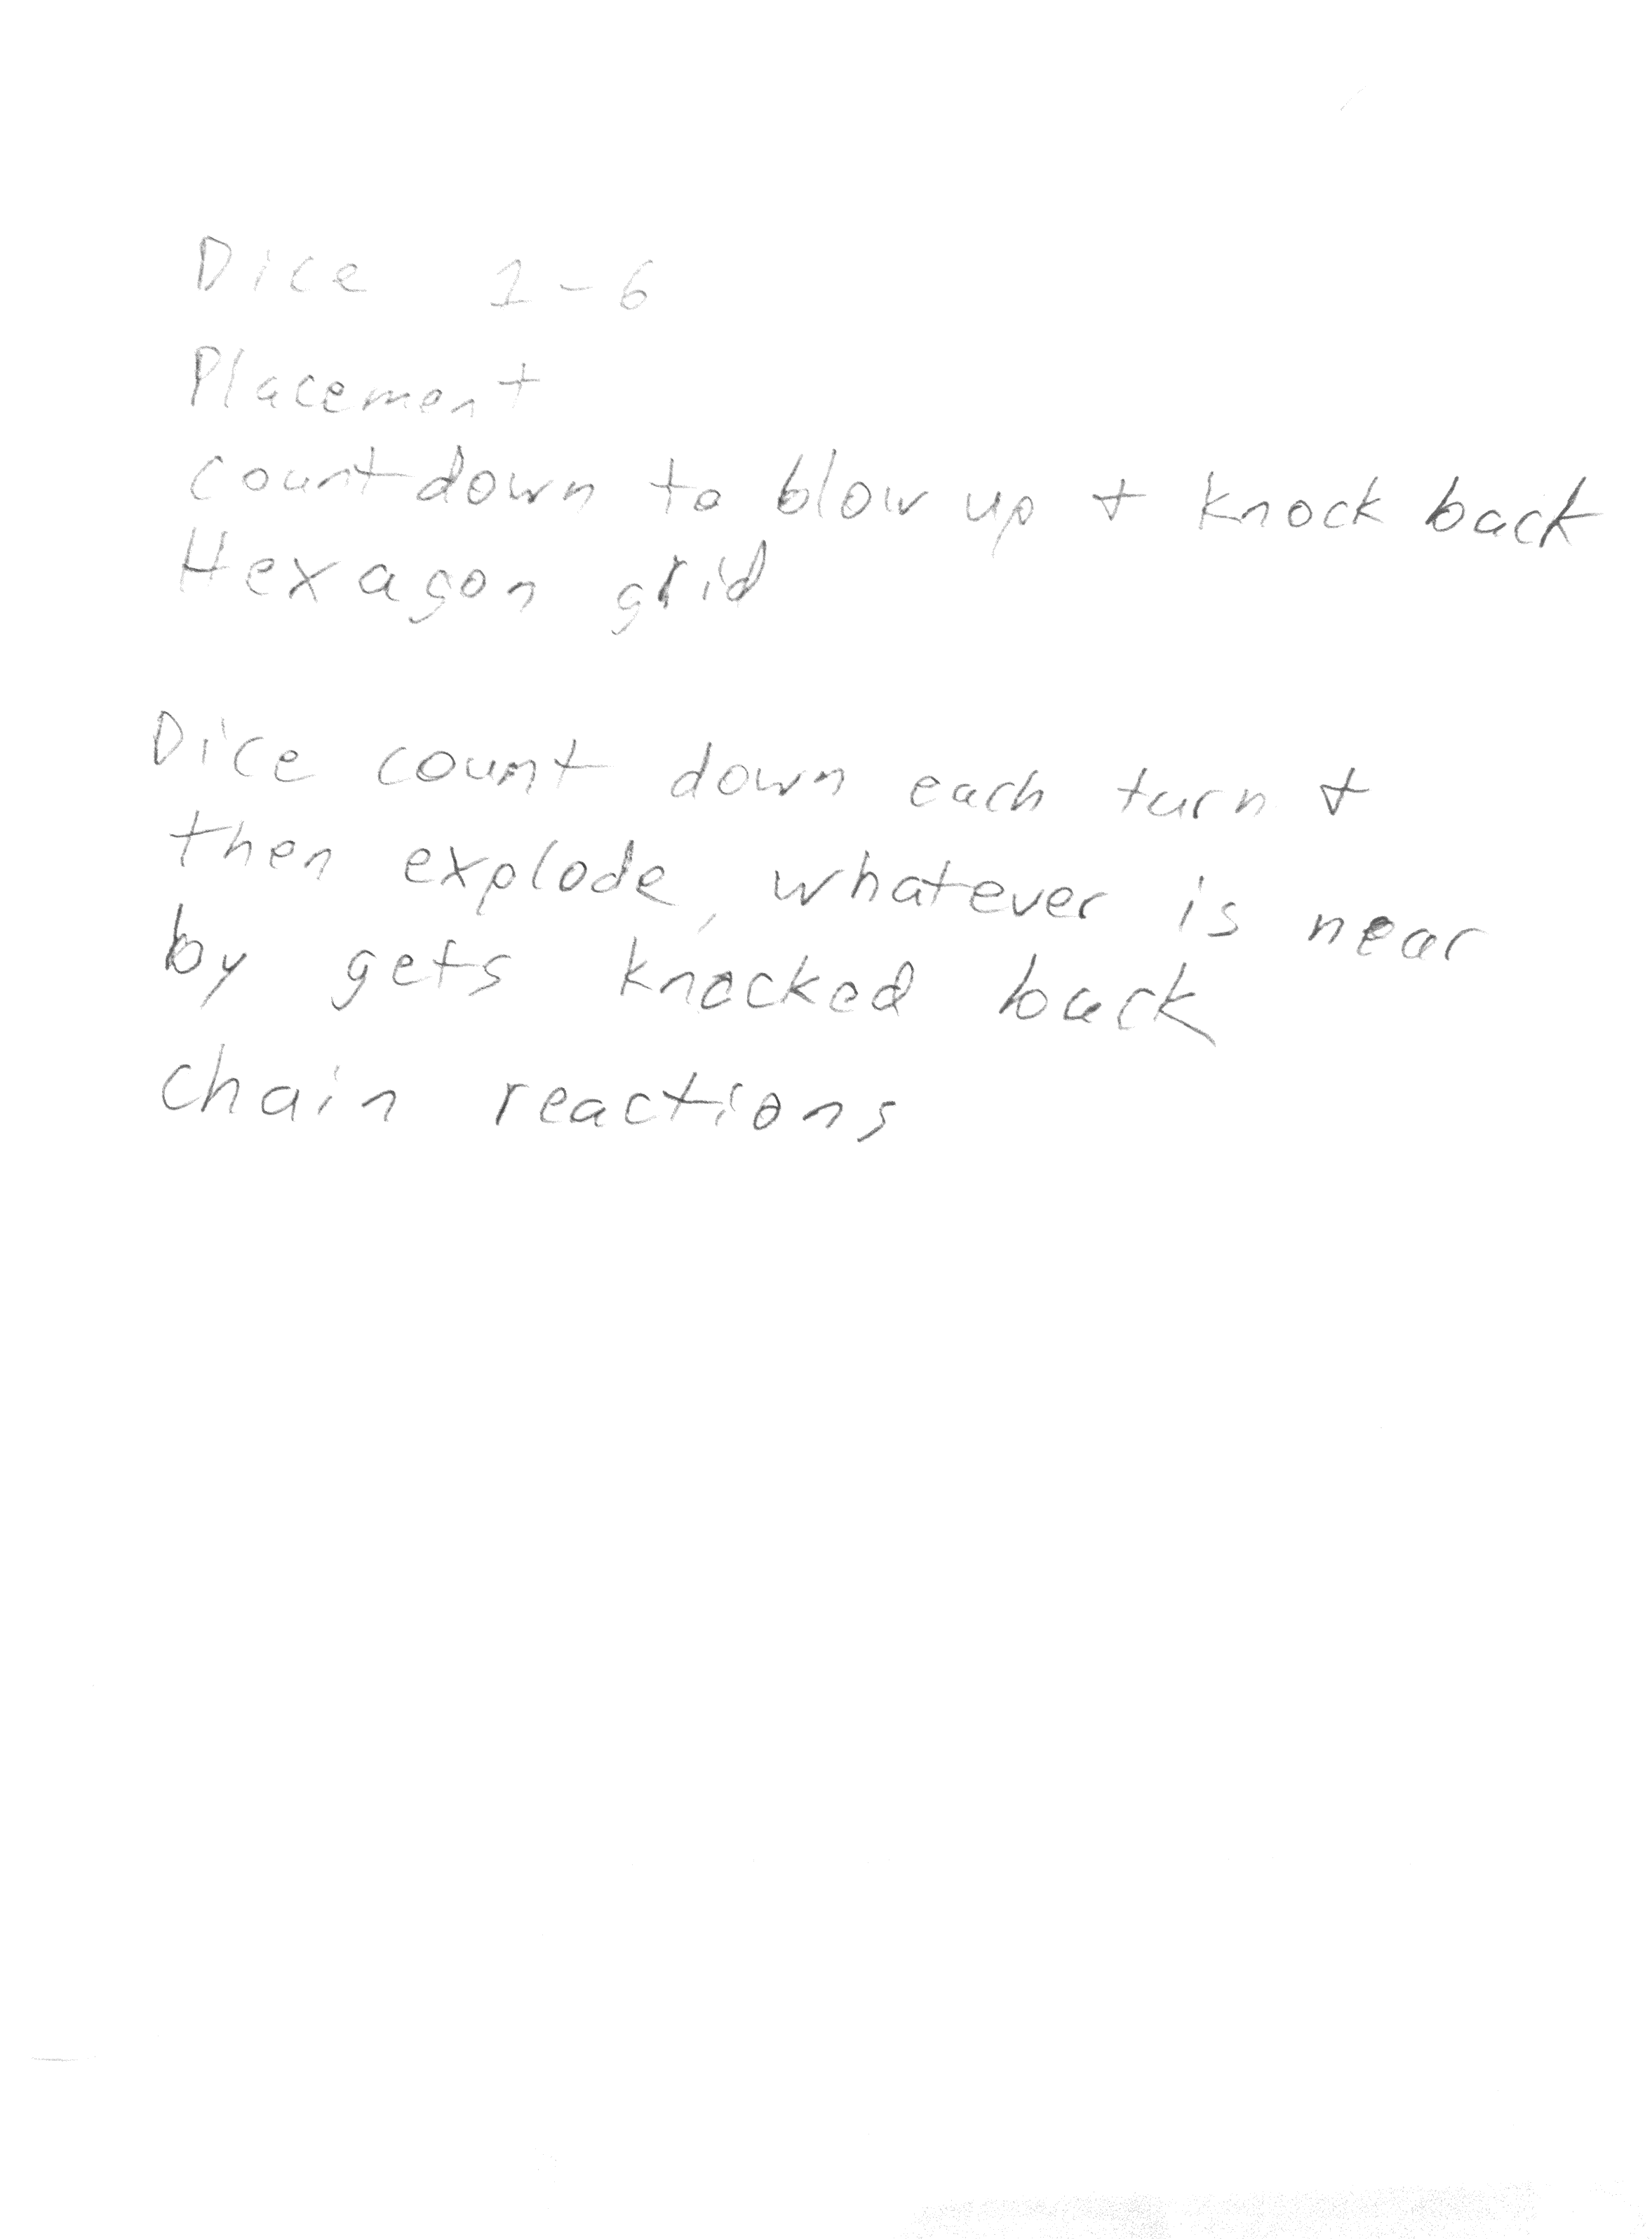 Dice 1-6
Placement
Countdown to blow up + knock back
Hexagon grid
Dice count down each turn +
then explode, whatever is near
by gets knocked back
chain reactions